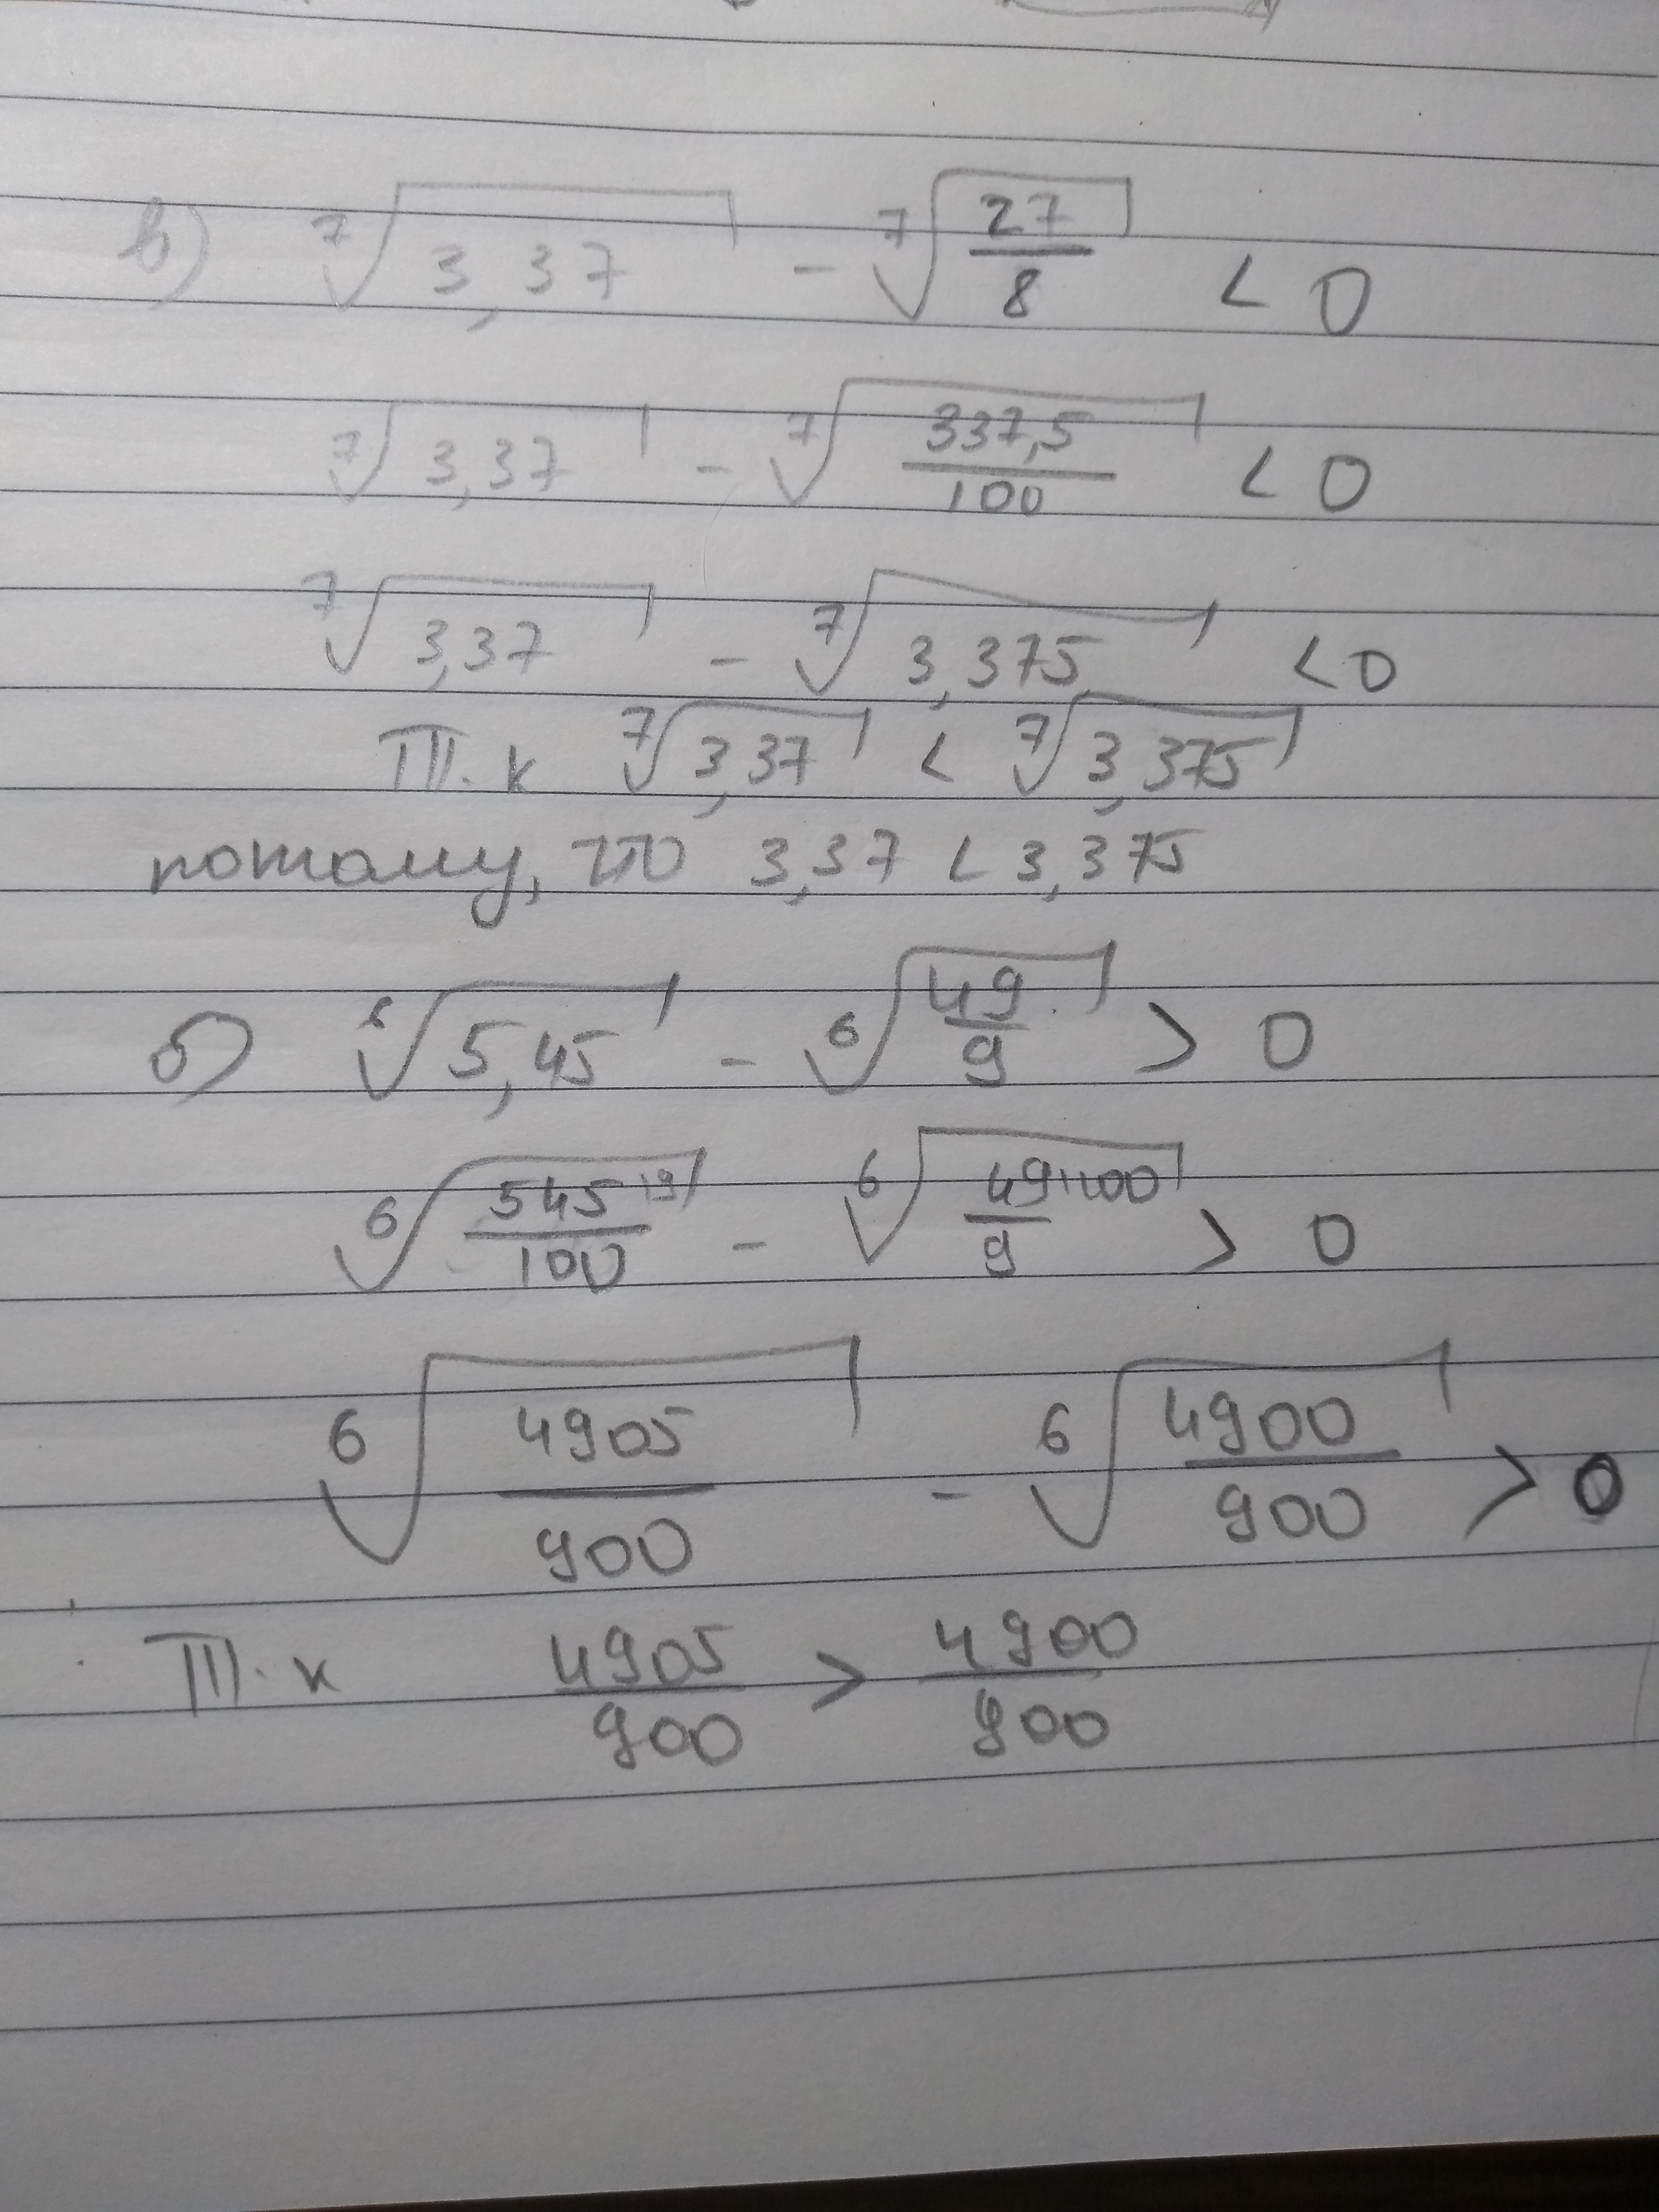 в) ⁷√3,37 - ⁷√27/8 < 0
⁷√3,37 - ⁷√337,5/100 < 0
⁷√3,37 - ⁷√3,375 < 0
Т.к ⁷√3,37 < ⁷√3,375
потому, что 3,37 < 3,375
б) ⁶√5,45 - ⁶√49/9 > 0
⁶√545\9/100 - ⁶√49\100/9 > 0
⁶√4905/900 - ⁶√4900/900 > 0
Т.к 4905/900 > 4900/900